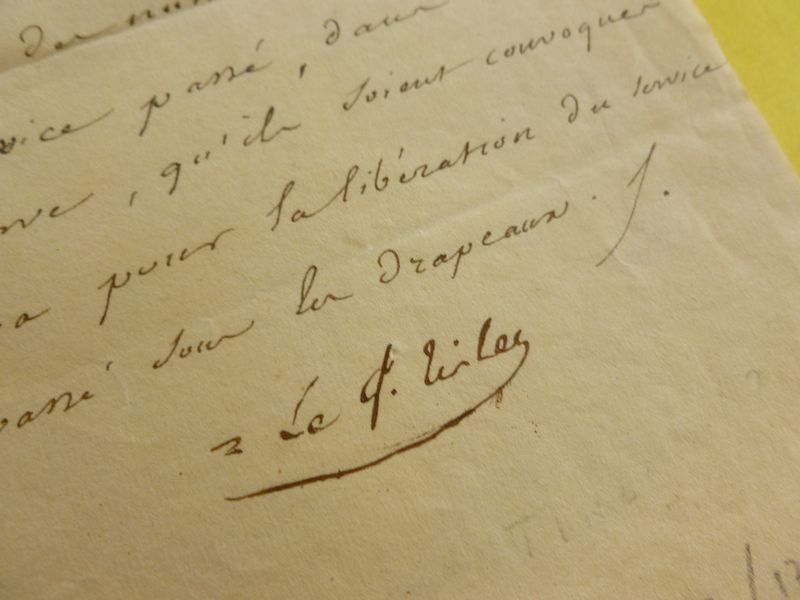 du
vice passé, dans
rve, qu'ils soient convoqués
a pour la libération du service
passé sous les drapeaux. /.
= Le G.